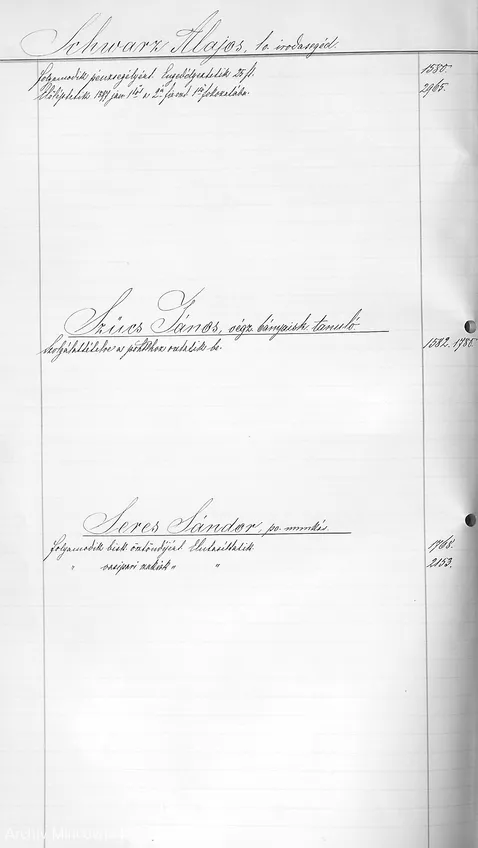 Schwarz Alajos, k. irodasegéd.
Folyamodik pénzsegélyért. Engedélyeztetik 25 ft. 1580.
Előléptetik 1899 jan 1től a 2. fizetési 1ső fokozatába. 2965.
Szűcs János, végz. bányaisk tanuló
szolgálattételre a osztatik be. 1582. 1785.
Seres Sándor, po. munkás.
Folyamodik ösztöndíjért. Elutasíttatik. 1768.
" vasipari szakisk " " 2153.